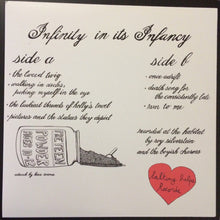 Infinity in its Infancy
side a
· the loved twig
· walking in circles,
poking myself in the eye
· the lushest threads of holly's towel
· pictures and the statues they depict
side b
· once adrift
· death song for
the consistently late
· run to me
recorded at the habitat
by roy silverstein
and the boyish charms
talking helps
Records
artwork by